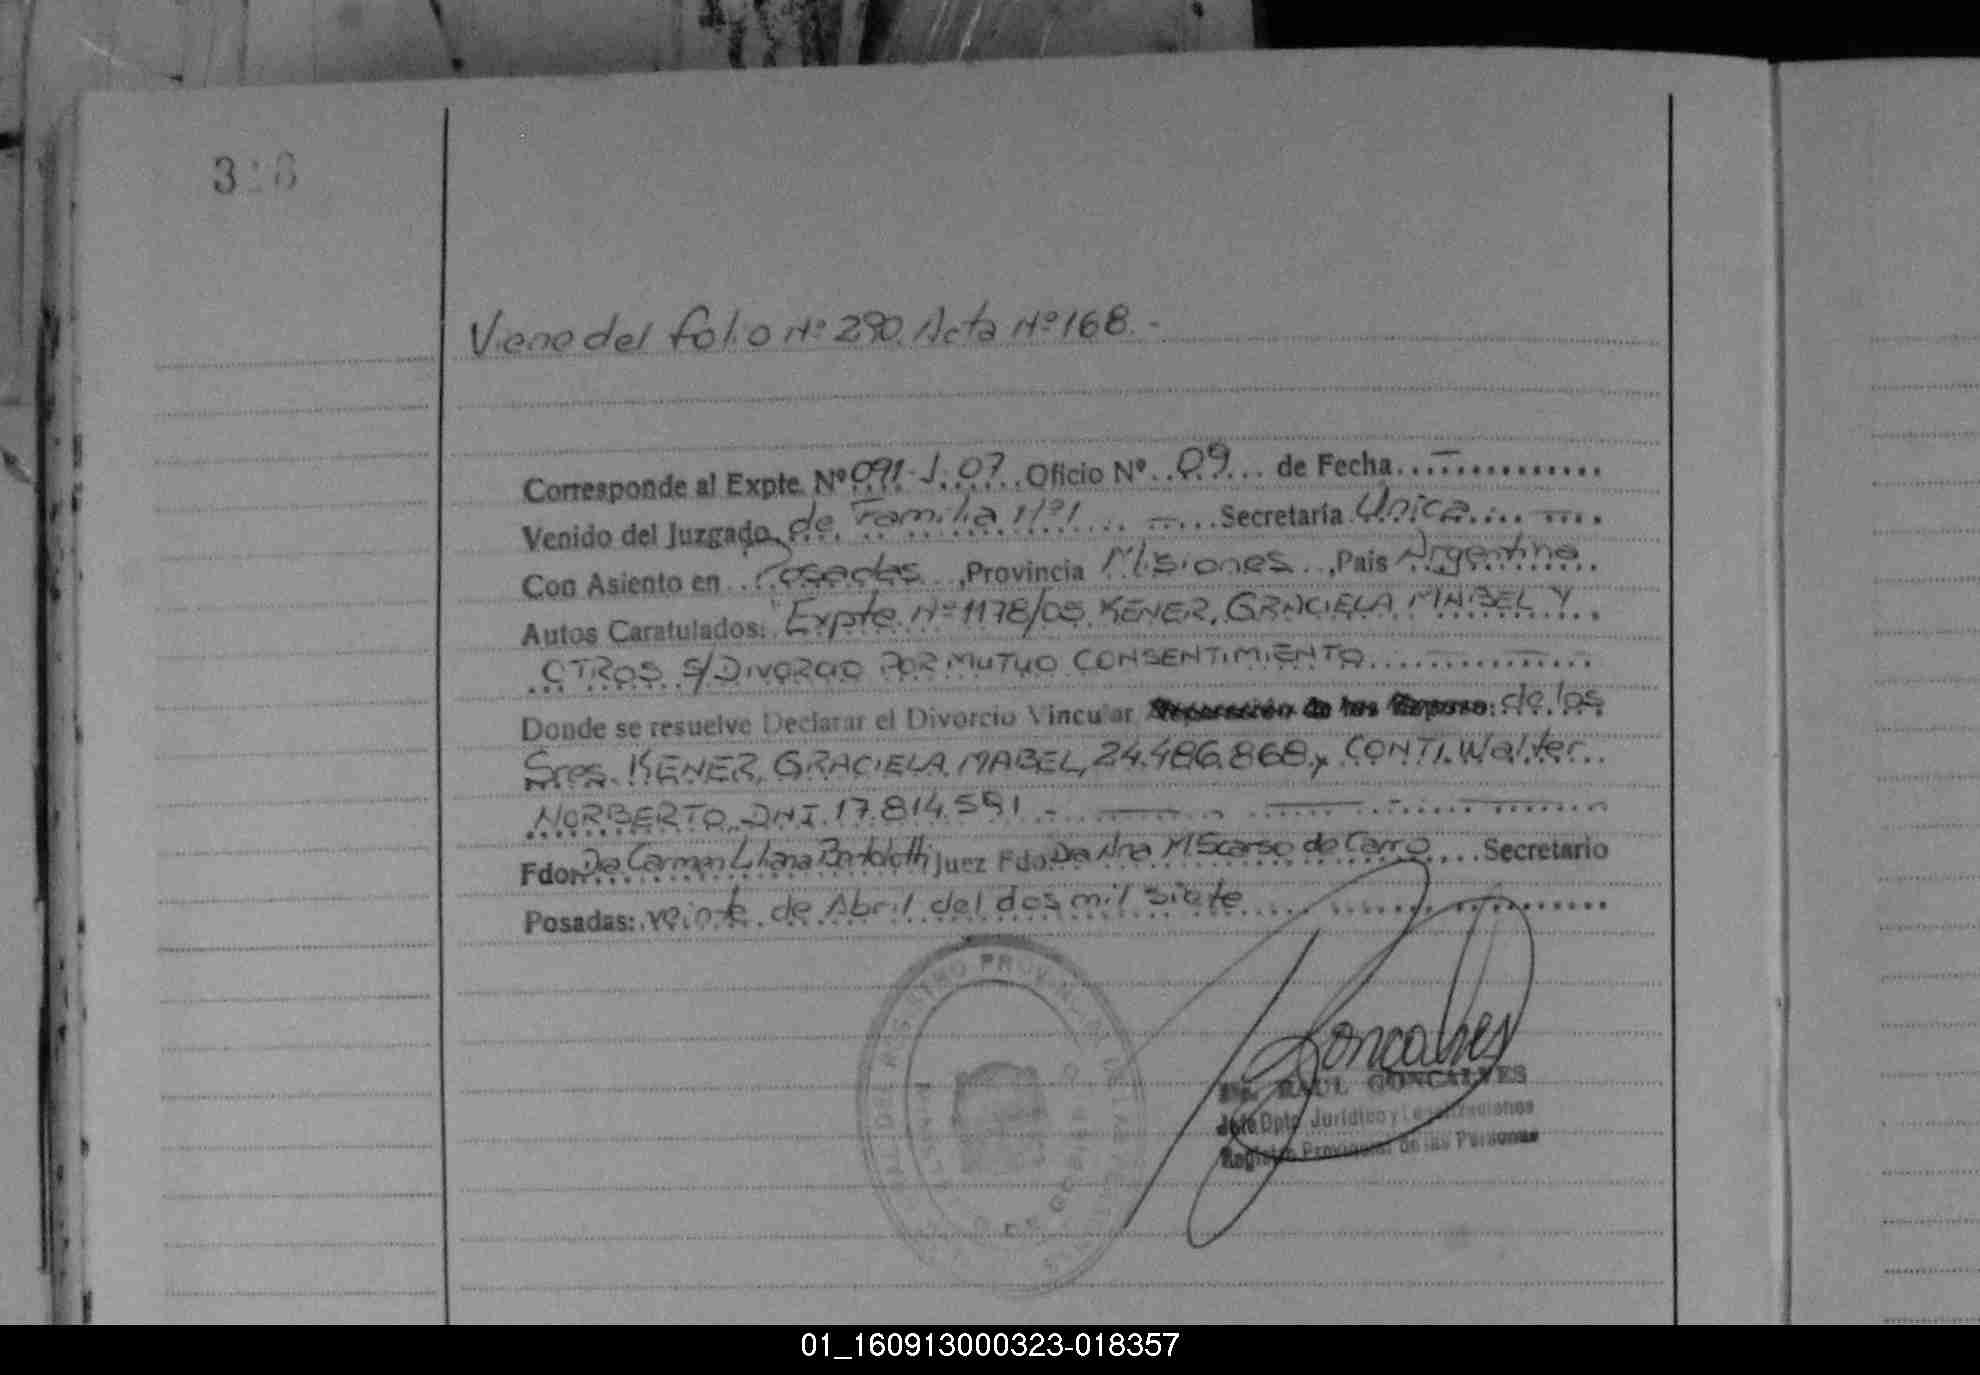 Viene del folio Nº 290. Acta Nº 168.-
Corresponde al Expte. Nº 091-J-07. Oficio Nº 09 de Fecha
Venido del Juzgado de Familia Nº 1 Secretaría Unica
Con Asiento en Posadas, Provincia Misiones, País Argentina
Autos Caratulados: "Expte. Nº 1178/05. KENER, GRACIELA MABEL Y
OTROS S/DIVORCIO POR MUTUO CONSENTIMIENTO
Donde se resuelve Declarar el Divorcio Vincular de los
Sres. KENER, GRACIELA MABEL, 24.486.868 y CONTI, Walter
NORBERTO, DNI. 17.814.591.-
Fdo: Dra Carmen Liliana Bertolotti Juez Fdo: Dra Ana M Scarso de Carro Secretario
Posadas: veinte de Abril del dos mil siete
REGISTRO PROVINCIAL
Goncalves
RAUL GONCALVES
Jefe Dpto. Jurídico y Legalizaciones
Registro Provincial de las Personas
01_160913000323-018357